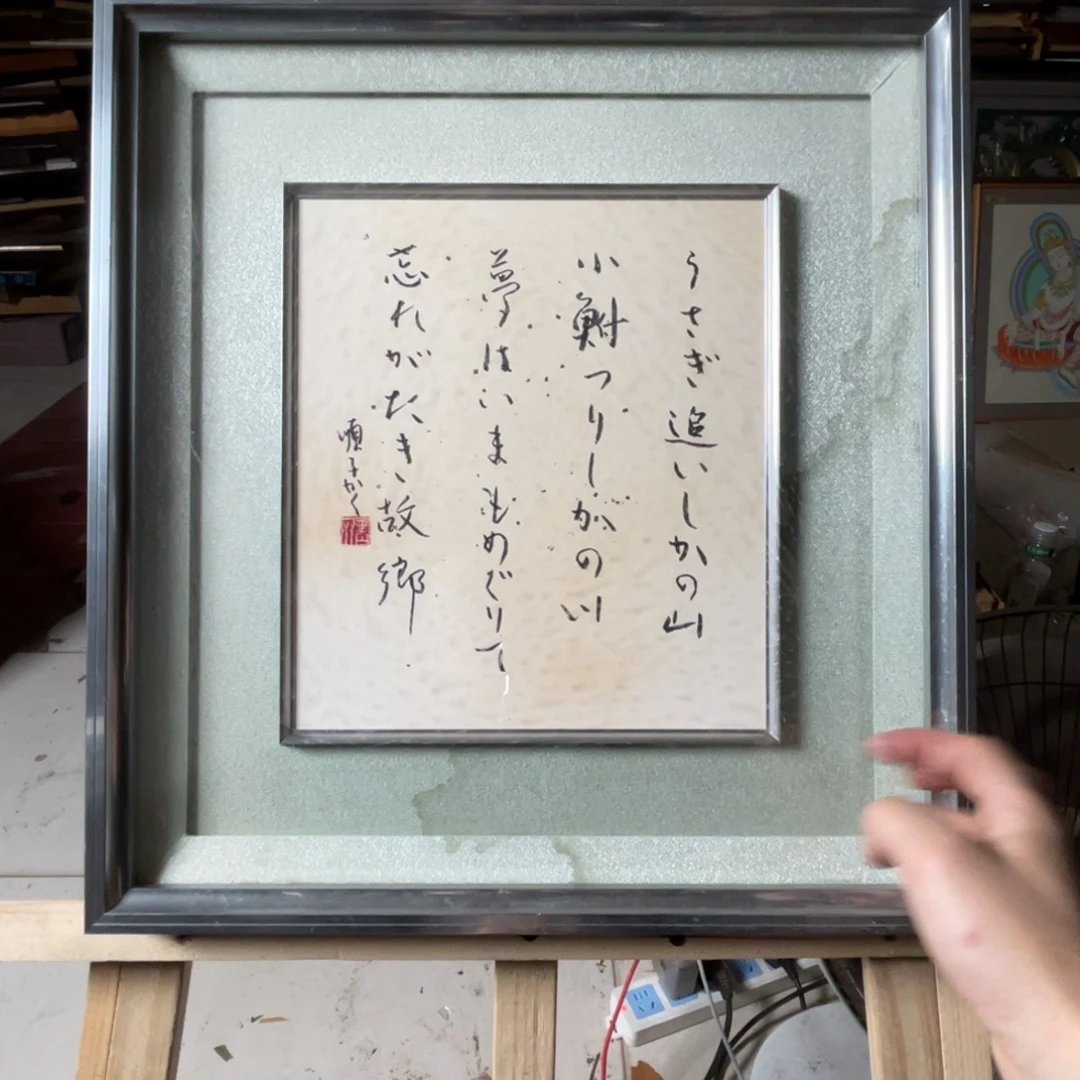 うさぎ追いしかの山
小鮒つりしがの川
夢はいまもめぐりて
忘れがたき故郷
順子かく